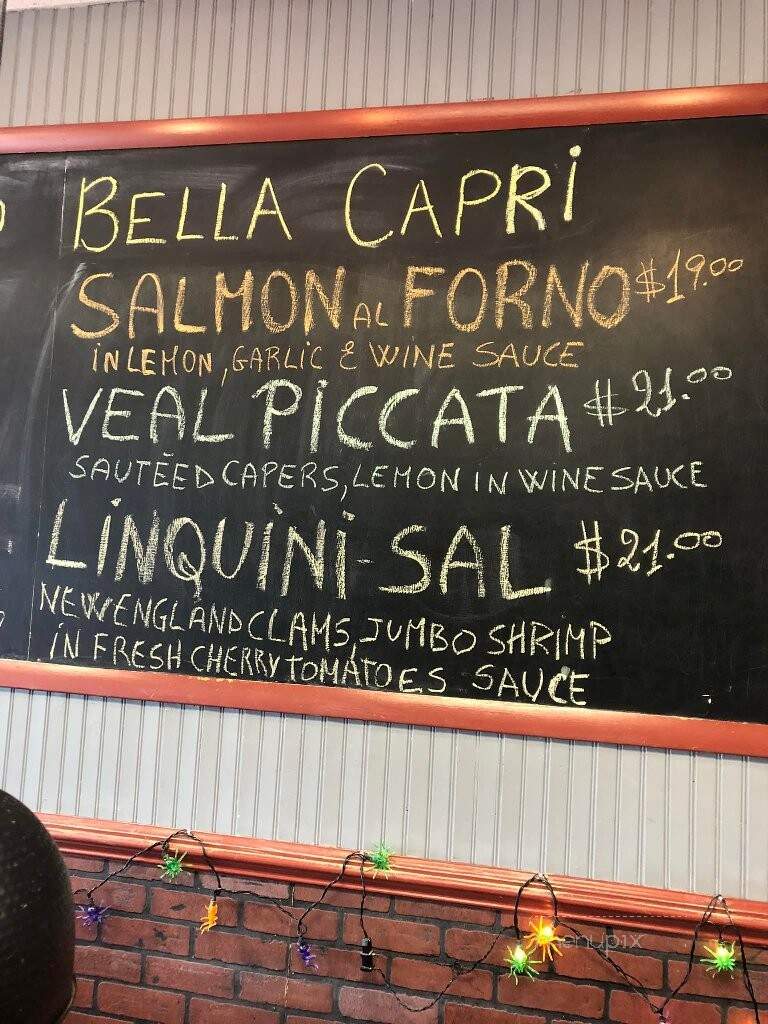 BELLA CAPRI
SALMON AL FORNO $19.00
IN LEMON, GARLIC & WINE SAUCE
VEAL PICCATA $21.00
SAUTĒED CAPERS, LEMON IN WINE SAUCE
LINQUINI-SAL $21.00
NEW ENGLAND CLAMS, JUMBO SHRIMP
IN FRESH CHERRY TOMATOES SAUCE
menupix